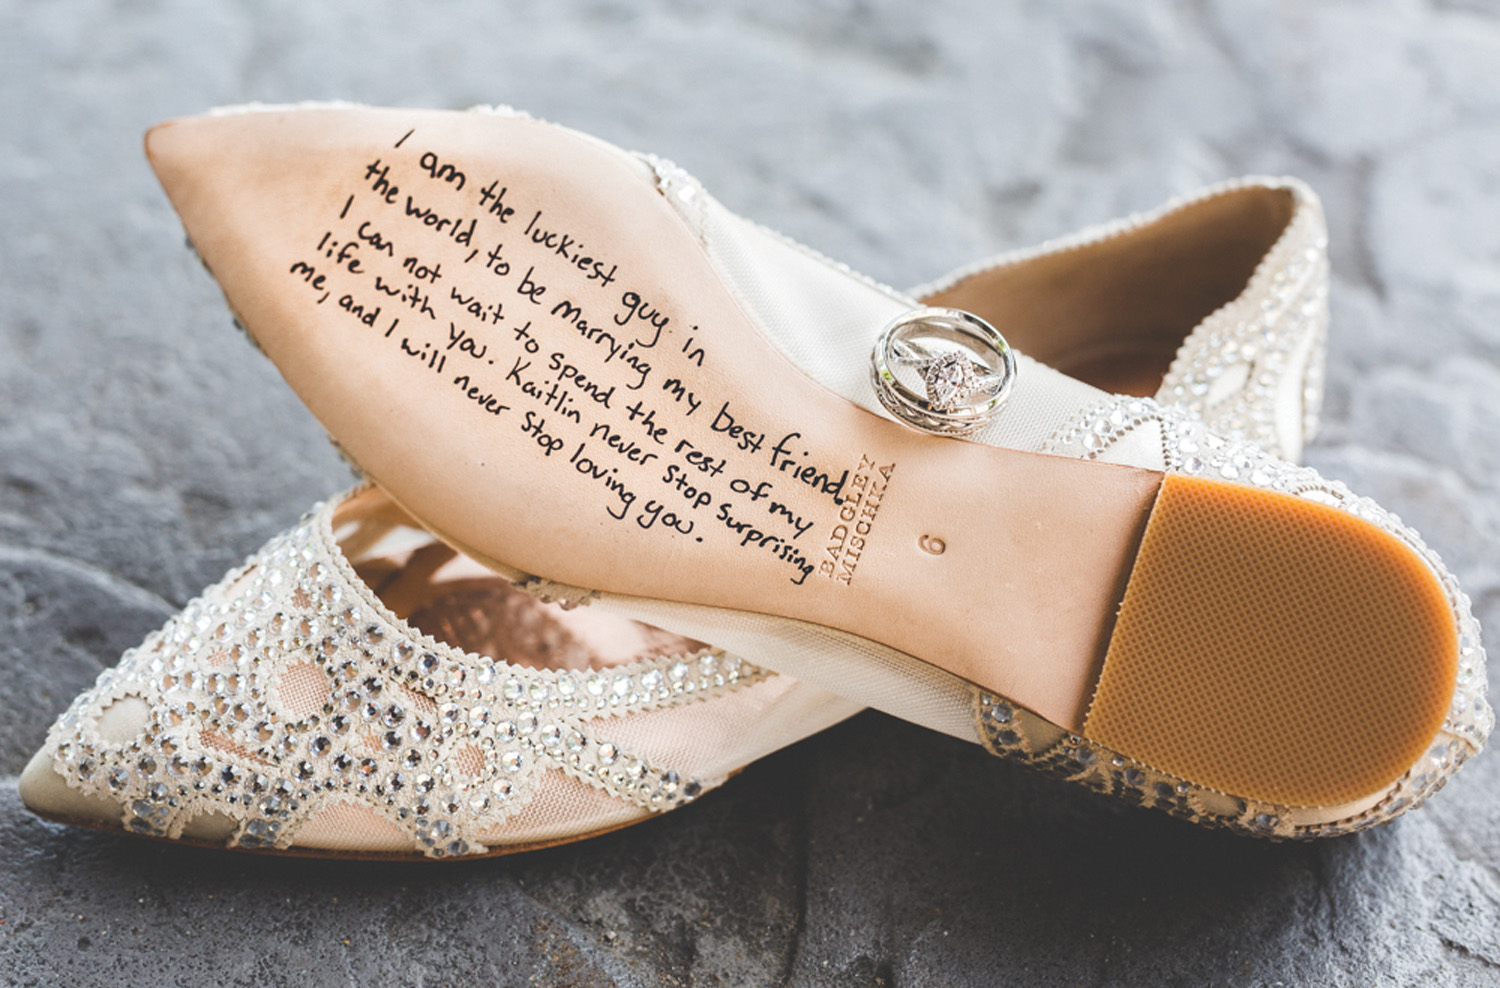 I am the luckiest guy in
the world, to be marrying my best friend
I can not wait to spend the rest of my
life with you. Kaitlin never stop surprising
me, and I will never stop loving you.
BADGLEY
MISCHKA
6